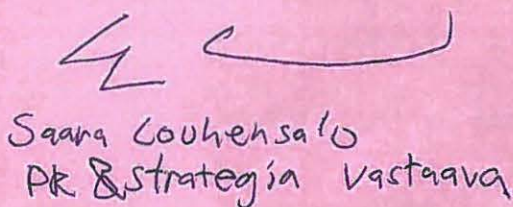 Saara Louhensalo
PR & strategia vastaava